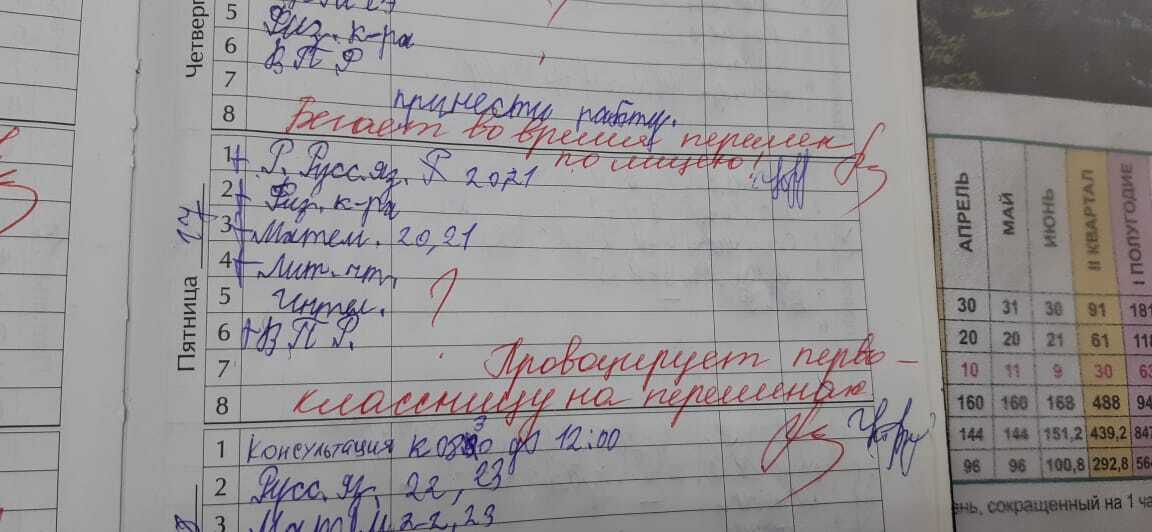 Четверг
5
6 Физ. к-ра
7 В П Р
8 принести работу.
Бегает во время перемен
по лицею!
Пятница 17
1 + Р. Русс. яз. 2021
2 + Физ. к-ра
3 + Матем. 20,21
4 + Лит. чт.
5 Интел.
6 + В П Р.
7 Провоцирует перво-
8 классницу на переменах
1 Консультация к 08 30 до 12:00
2 Русс. яз. 22, 23
3
АПРЕЛЬ МАЙ ИЮНЬ II КВАРТАЛ I ПОЛУГОДИЕ
30 31 30 91 181
20 20 21 61 118
10 11 9 30 63
160 160 168 488 94
144 144 151,2 439,2 847
96 96 100,8 292,8 564
нь, сокращенный на 1 ча